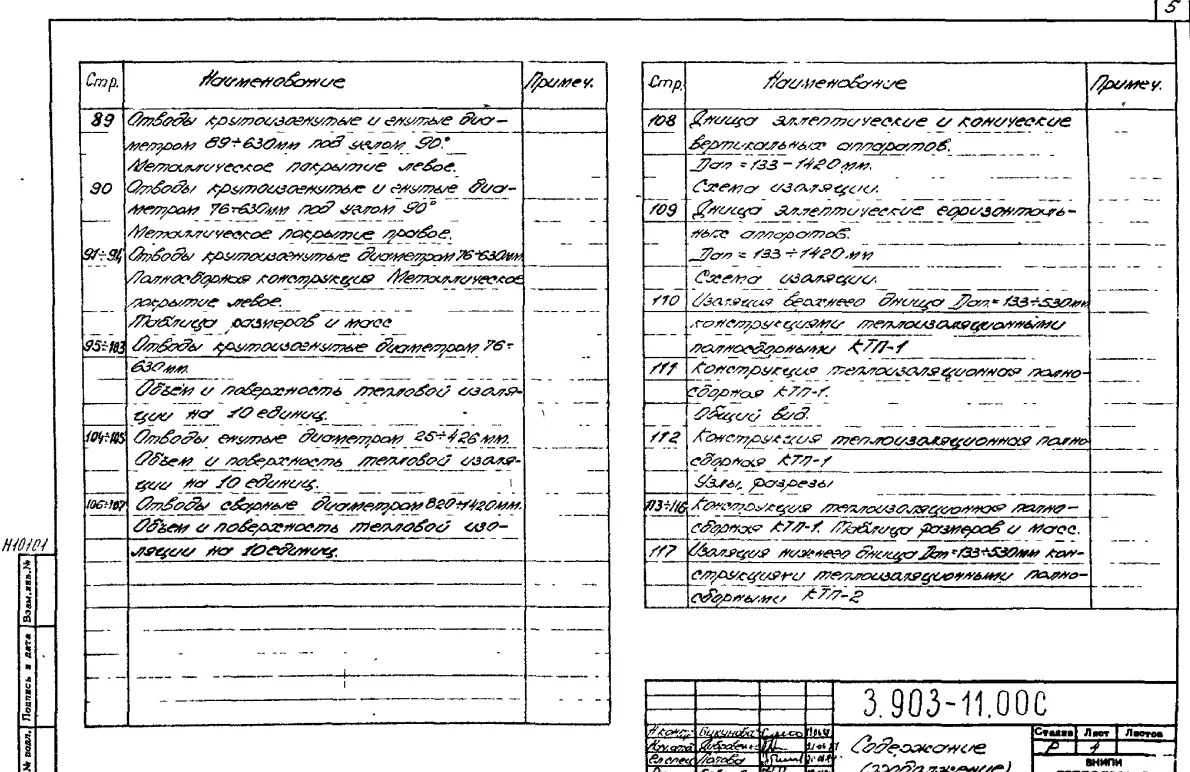 5
Стр. Наименование Примеч.
89 Отводы крутоизогнутые и гнутые диа-
метром 89÷630мм под углом 90°.
Металлическое покрытие левое.
90 Отводы крутоизогнутые и гнутые диа-
метром 76÷630мм под углом 90°
Металлическое покрытие правое.
91÷94 Отводы крутоизогнутые диаметром 76÷630мм
Полносборная конструкция Металлическое
покрытие левое.
Таблица размеров и масс
95÷103 Отводы крутоизогнутые диаметром 76÷
630мм.
Объем и поверхность тепловой изоля-
ции на 10 единиц.
104÷105 Отводы гнутые диаметром 25÷426мм.
Объем и поверхность тепловой изоля-
ции на 10 единиц.
106÷107 Отводы сварные диаметром 820÷1420мм.
Объем и поверхность тепловой изо-
ляции на 10 единиц.
Стр. Наименование Примеч.
108 Днища эллептические и конические
вертикальных аппаратов.
Дап = 133÷1420мм.
Схема изоляции.
109 Днища эллептические горизонталь-
ных аппаратов.
Дап = 133÷1420мм
Схема изоляции.
110 Изоляция верхнего днища Дап=133÷530мм
конструкциями теплоизоляционными
полносборными КТП-1
111 Конструкция теплоизоляционная полно-
сборная КТП-1.
Общий вид.
112 Конструкция теплоизоляционная полно
сборная КТП-1
Узлы, разрезы
113÷116 Конструкция теплоизоляционная полно-
сборная КТП-1. Таблица размеров и масс.
117 Изоляция нижнего днища Дап=133÷530мм кон-
струкциями теплоизоляционными полно-
сборными КТП-2
Н10101
Взам.инв.№
Подпись и дата
№ подл.
3.903-11.00С
Содержание
(продолжение)
Стадия Лист Листов
Р 4
ВНИПИ